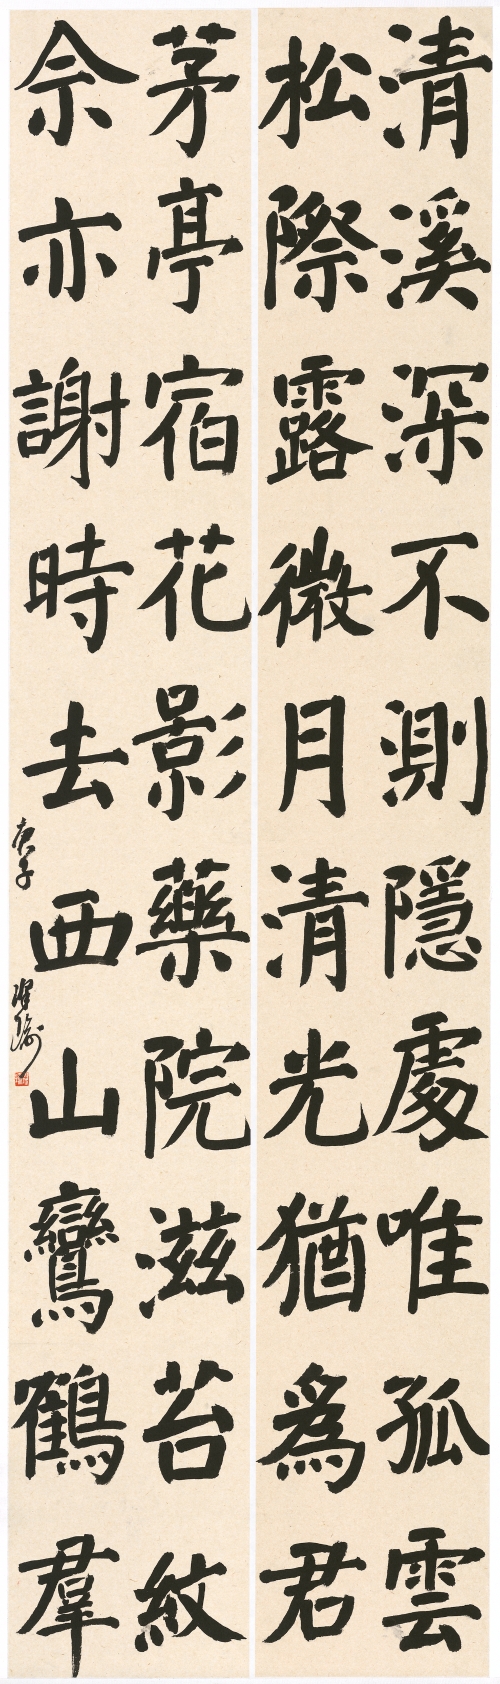 清溪深不測隱處唯孤雲
松際露微月清光猶爲君
茅亭宿花影藥院滋苔紋
余亦謝時去西山鸞鶴羣
庚子